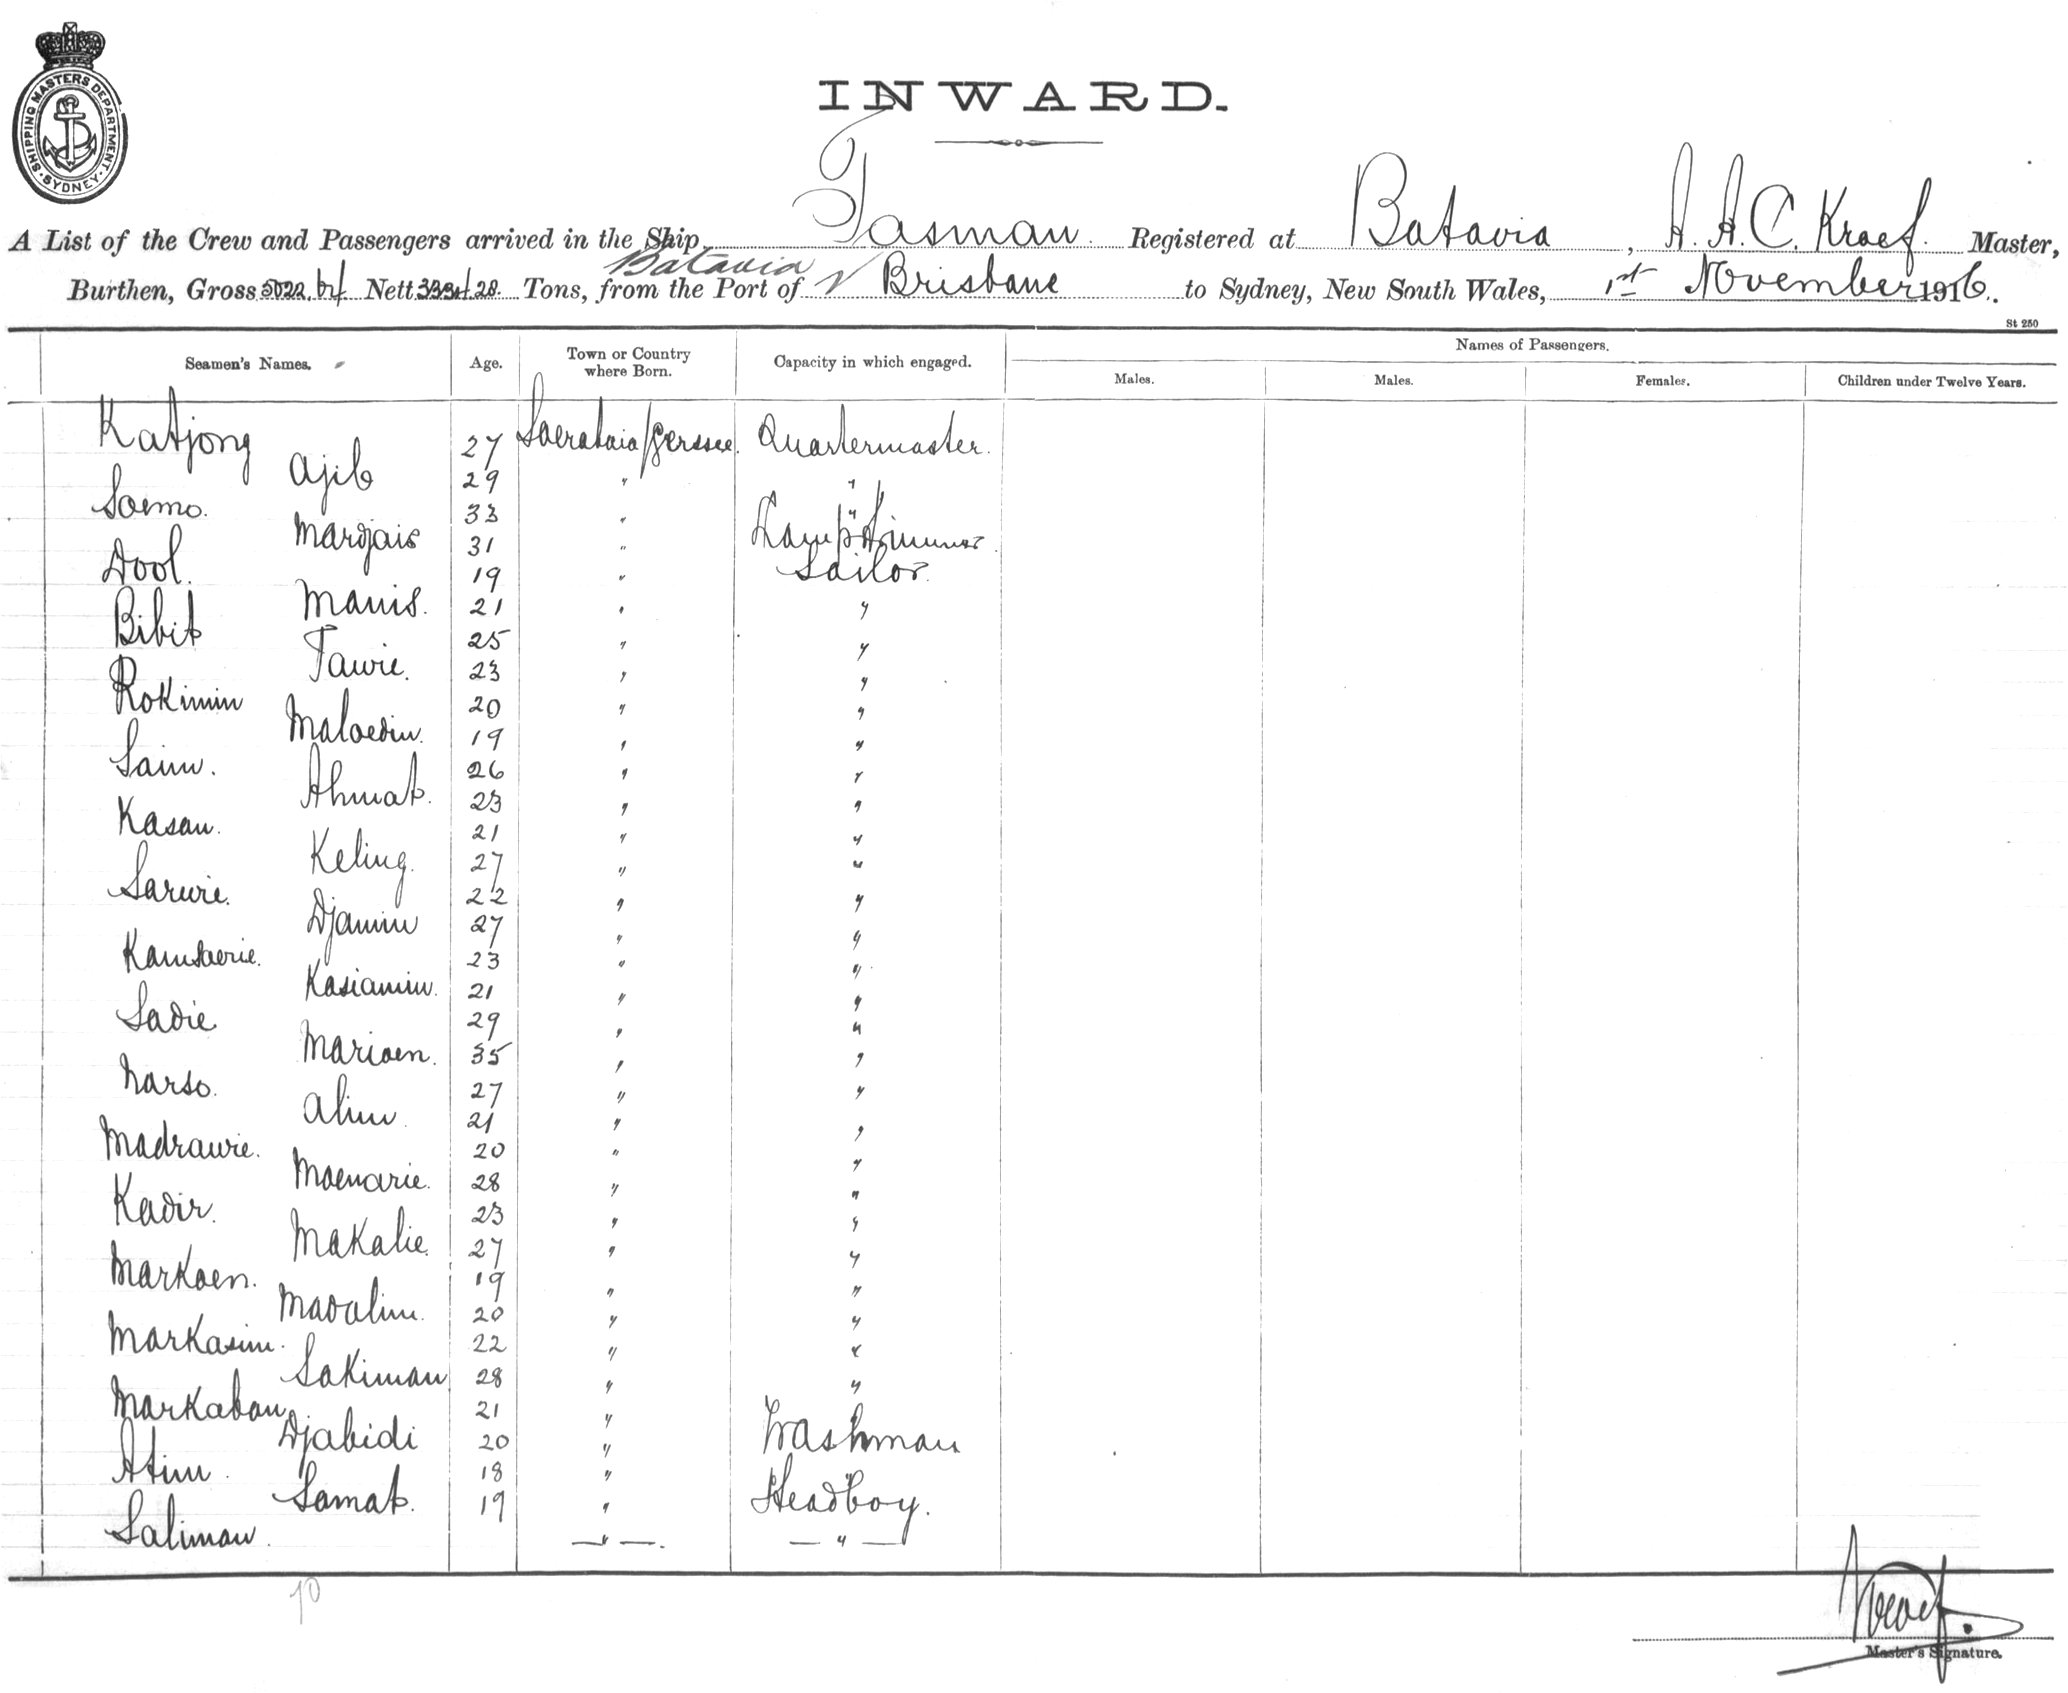 SHIPPING MASTERS DEPARTMENT
SYDNEY
INWARD.
A List of the Crew and Passengers arrived in the Ship Tasman Registered at Batavia, A. A. C. Kraef. Master,
Batavia
Burthen, Gross 5022 Nett Tons, from the Port of Brisbane to Sydney, New South Wales, 1st November 1916.
St 250
Seamen's Names. Age. Town or Country where Born. Capacity in which engaged. Names of Passengers.
Males. Males. Females. Children under Twelve Years.
Katjong 27 Soerabaia/Gerssee. Quartermaster.
Ajib 29 " "
Soemo. 33 " "
Mardjais 31 " Lamptrimmer
Dool. 19 " Sailor.
Manis. 21 " "
Bibit 25 " "
Tawie. 23 " "
Rokimin 20 " "
Maloedin. 19 " "
Saim. 26 " "
Ahmat. 23 " "
Kasan. 21 " "
Keling. 27 " "
Sarwie. 22 " "
Djamin 27 " "
Kamsaerie. 23 " "
Kasiamin. 21 " "
Sadie 29 " "
Marioen. 35 " "
Narso. 27 " "
Alim. 21 " "
Madrawie. 20 " "
Moenarie. 28 " "
Kadir. 23 " "
Makalie. 27 " "
Markoen. 19 " "
Madalim. 20 " "
Markasim. 22 " "
Sakiman 28 " "
Markaban 21 "
Djabidi 20 " Washman
Atim. 18 " "
Samat. 19 " Headboy.
Saliman. " "
10
Kraef.
Master's Signature.